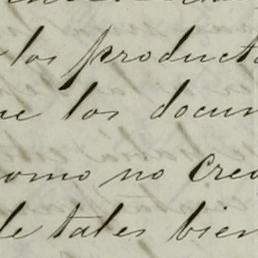 los product
ue los docum
como no cre
de tales bien